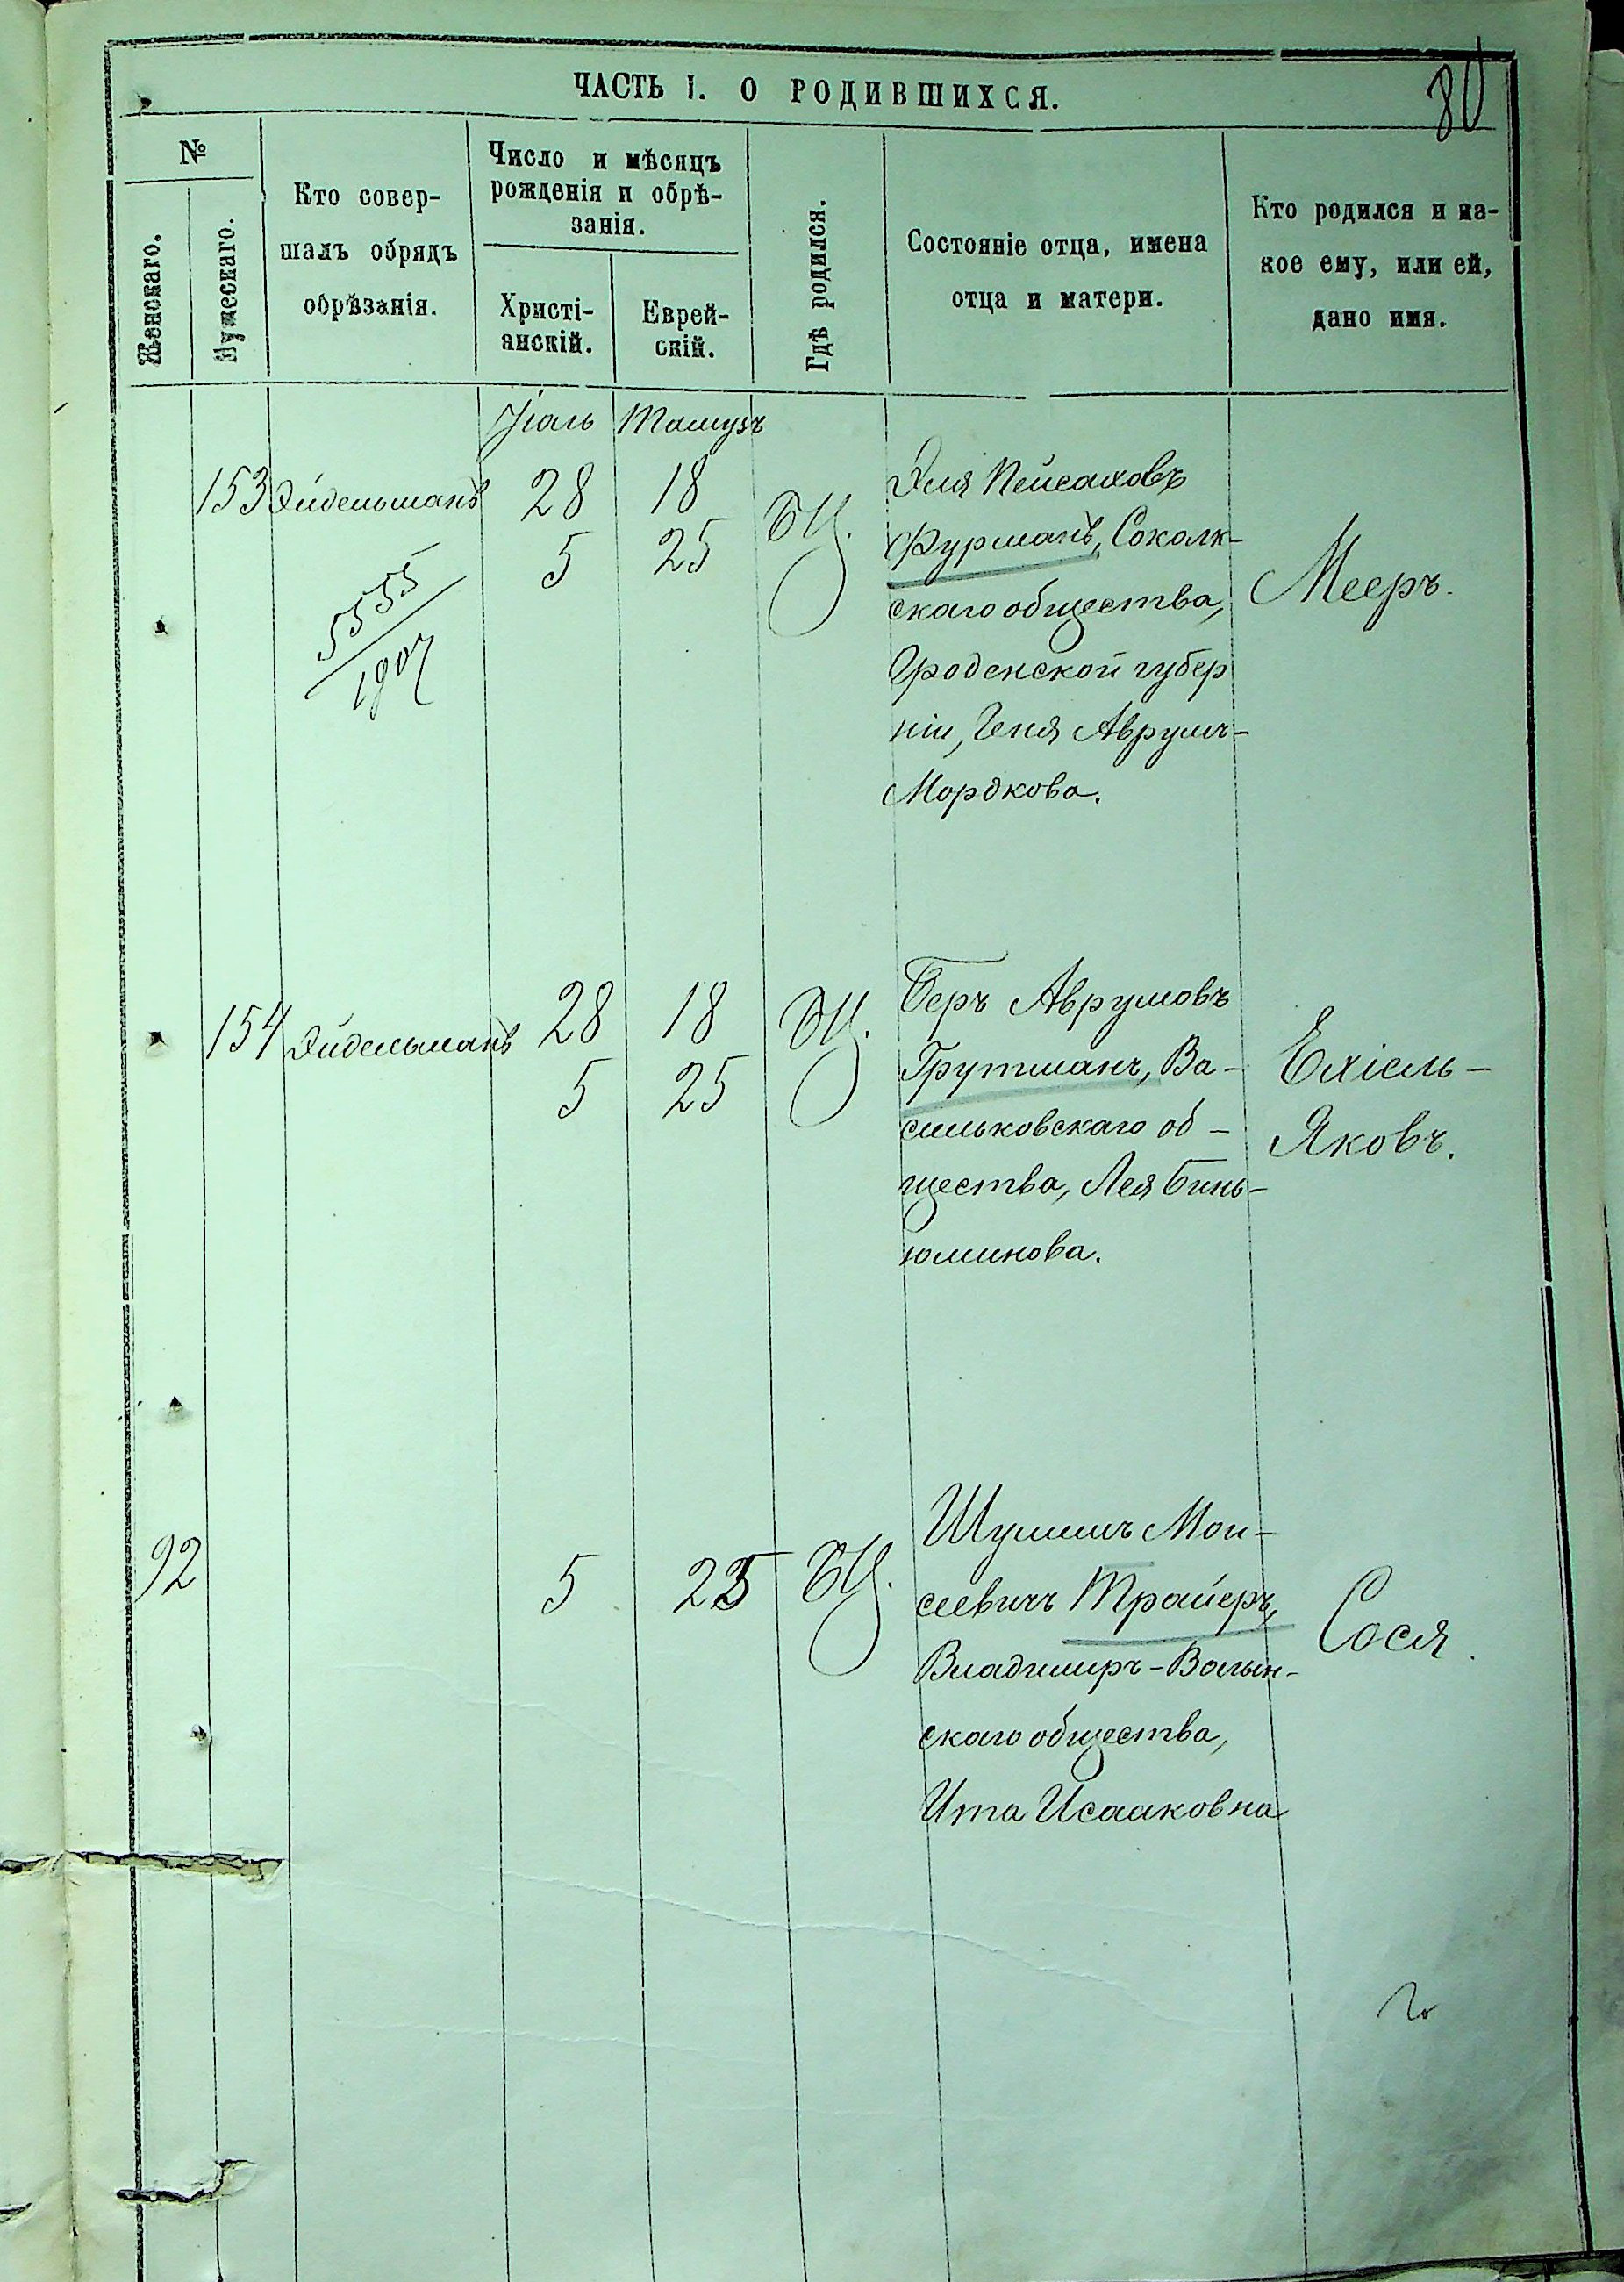 80
ЧАСТЬ I. О РОДИВШИХСЯ.
№
Женскаго.
Мужескаго.
Кто совер-
шалъ обрядъ
обрѣзанія.
Число и мѣсяцъ
рожденія и обрѣ-
занія.
Христі-
анскій.
Еврей-
скій.
Гдѣ родился.
Состояніе отца, имена
отца и матери.
Кто родился и ка-
кое ему, или ей,
дано имя.
Іюль Тамузъ
153 Эйдельманъ 28 18 БЦ.
5 25
5555
1907
Эля Пейсаховъ
Фурманъ, Соколк-
скаго общества,
Гроденской губер
ніи, Геня Аврумъ-
Мордкова.
Мееръ.
154 Эйдельманъ 28 18 БЦ.
5 25
Беръ Аврумовъ
Грутманъ, Ва-
сильковскаго об-
щества, Лея Бинь-
юминова.
Ехіель-
Яковъ.
92 5 25 БЦ.
Шулимъ Мои-
сеевичъ Трайеръ,
Владимиръ-Волын-
скаго общества,
Ита Исааковна
Сося.